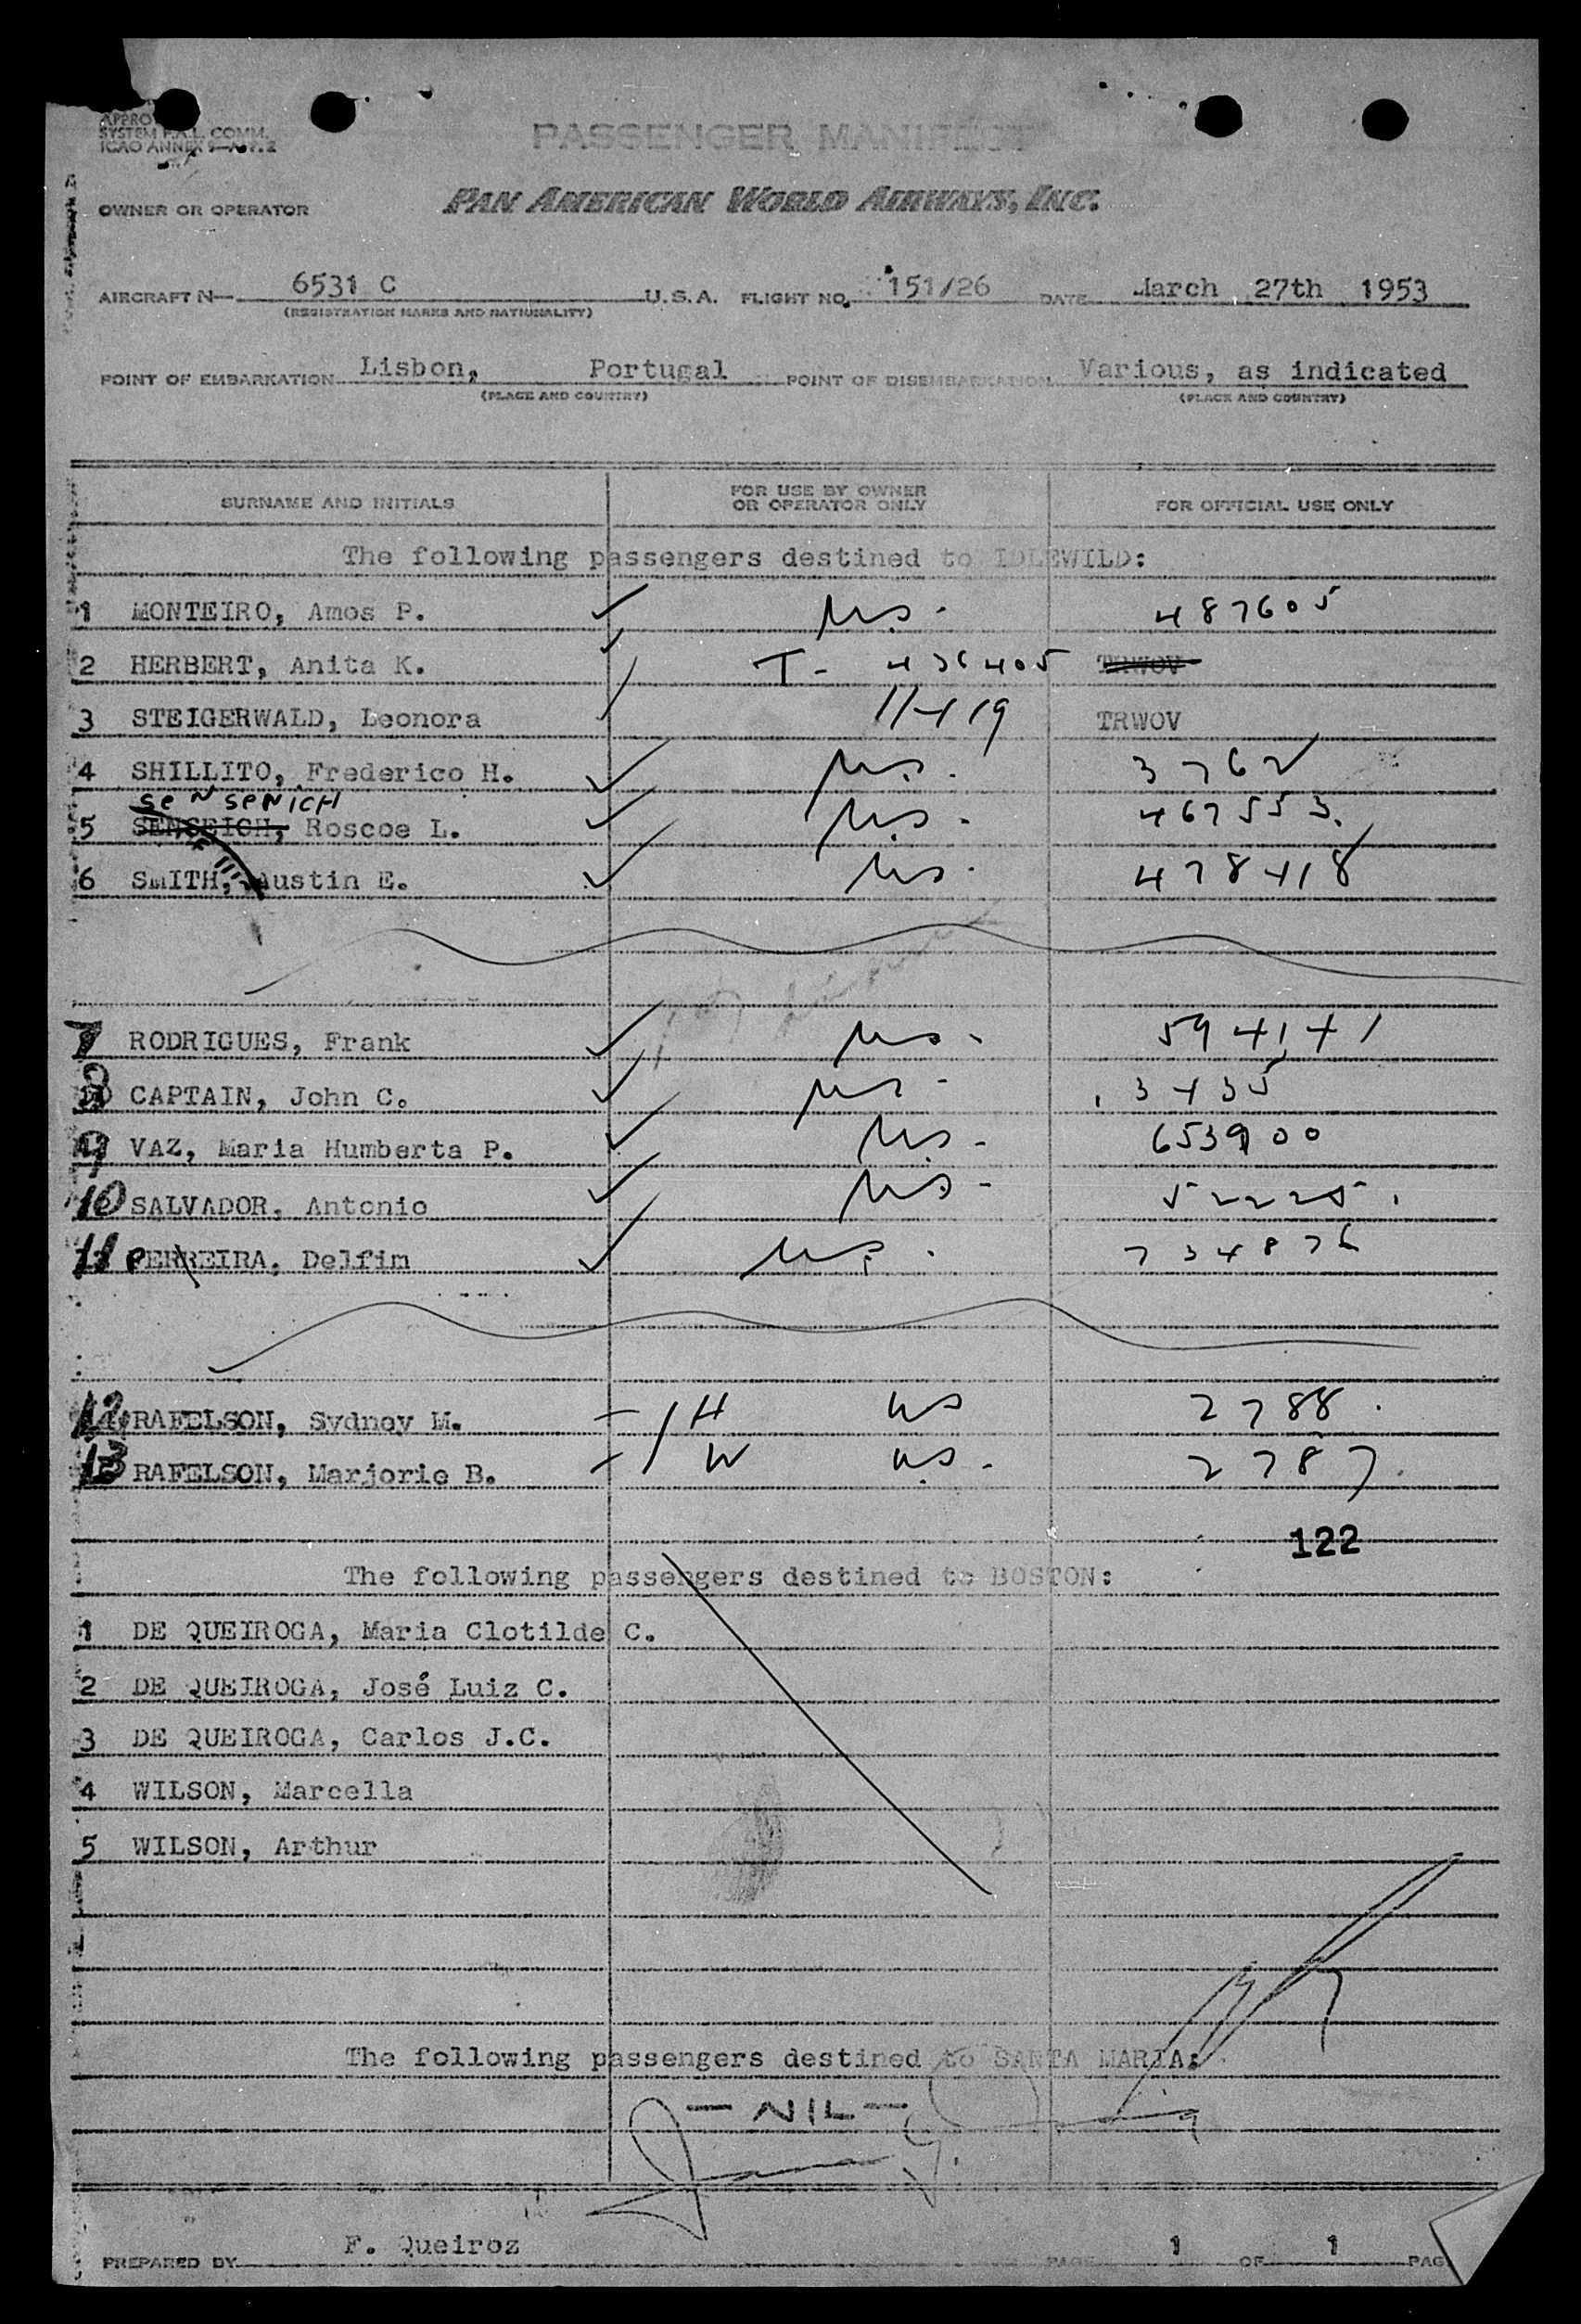 SYSTEM F.A.L. COMM.
PASSENGER MANIFEST
OWNER OR OPERATOR PAN AMERICAN WORLD AIRWAYS, INC.
AIRCRAFT N— 6531 C U.S.A. FLIGHT NO. 151/26 DATE March 27th 1953
(REGISTRATION MARKS AND NATIONALITY)
POINT OF EMBARKATION Lisbon, Portugal POINT OF DISEMBARKATION Various, as indicated
(PLACE AND COUNTRY) (PLACE AND COUNTRY)
SURNAME AND INITIALS FOR USE BY OWNER OR OPERATOR ONLY FOR OFFICIAL USE ONLY
The following passengers destined to IDLEWILD:
1 MONTEIRO, Amos P. U.S. 487605
2 HERBERT, Anita K. T- 436405 TRWOV
3 STEIGERWALD, Leonora TRWOV
4 SHILLITO, Frederico H. U.S. 3762
SENSENICH
5 SENSEICH, Roscoe L. U.S. 467553
6 SMITH, Austin E. U.S. 478418
7 RODRIGUES, Frank U.S. 594141
8 CAPTAIN, John C. U.S. 3435
9 VAZ, Maria Humberta P. U.S. 653900
10 SALVADOR, Antonio U.S. 52225
11 FERREIRA, Delfim U.S. 734876
12 RAFELSON, Sydney M. H US 2788
13 RAFELSON, Marjorie B. W U.S. 2787
122
The following passengers destined to BOSTON:
1 DE QUEIROGA, Maria Clotilde C.
2 DE QUEIROGA, José Luiz C.
3 DE QUEIROGA, Carlos J.C.
4 WILSON, Marcella
5 WILSON, Arthur
The following passengers destined to SANTA MARIA:
— NIL —
PREPARED BY F. Queiroz PAGE 1 OF 1 PAG